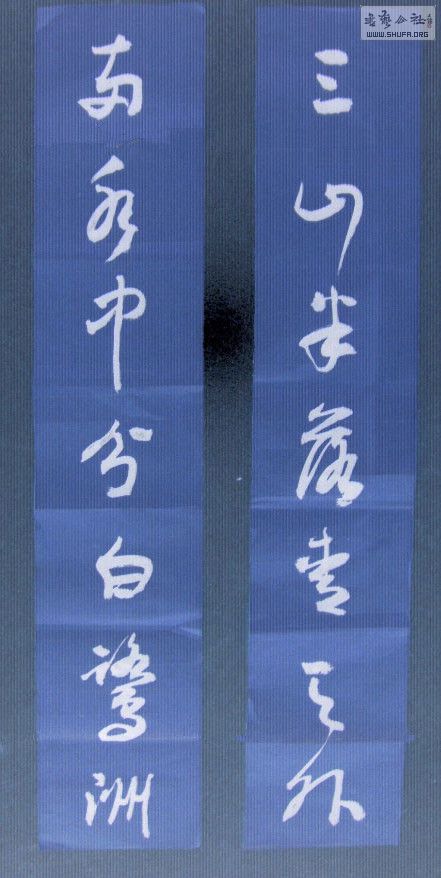 書藝公社
WWW.SHUFA.ORG
三山半落青天外
兩水中分白鷺洲